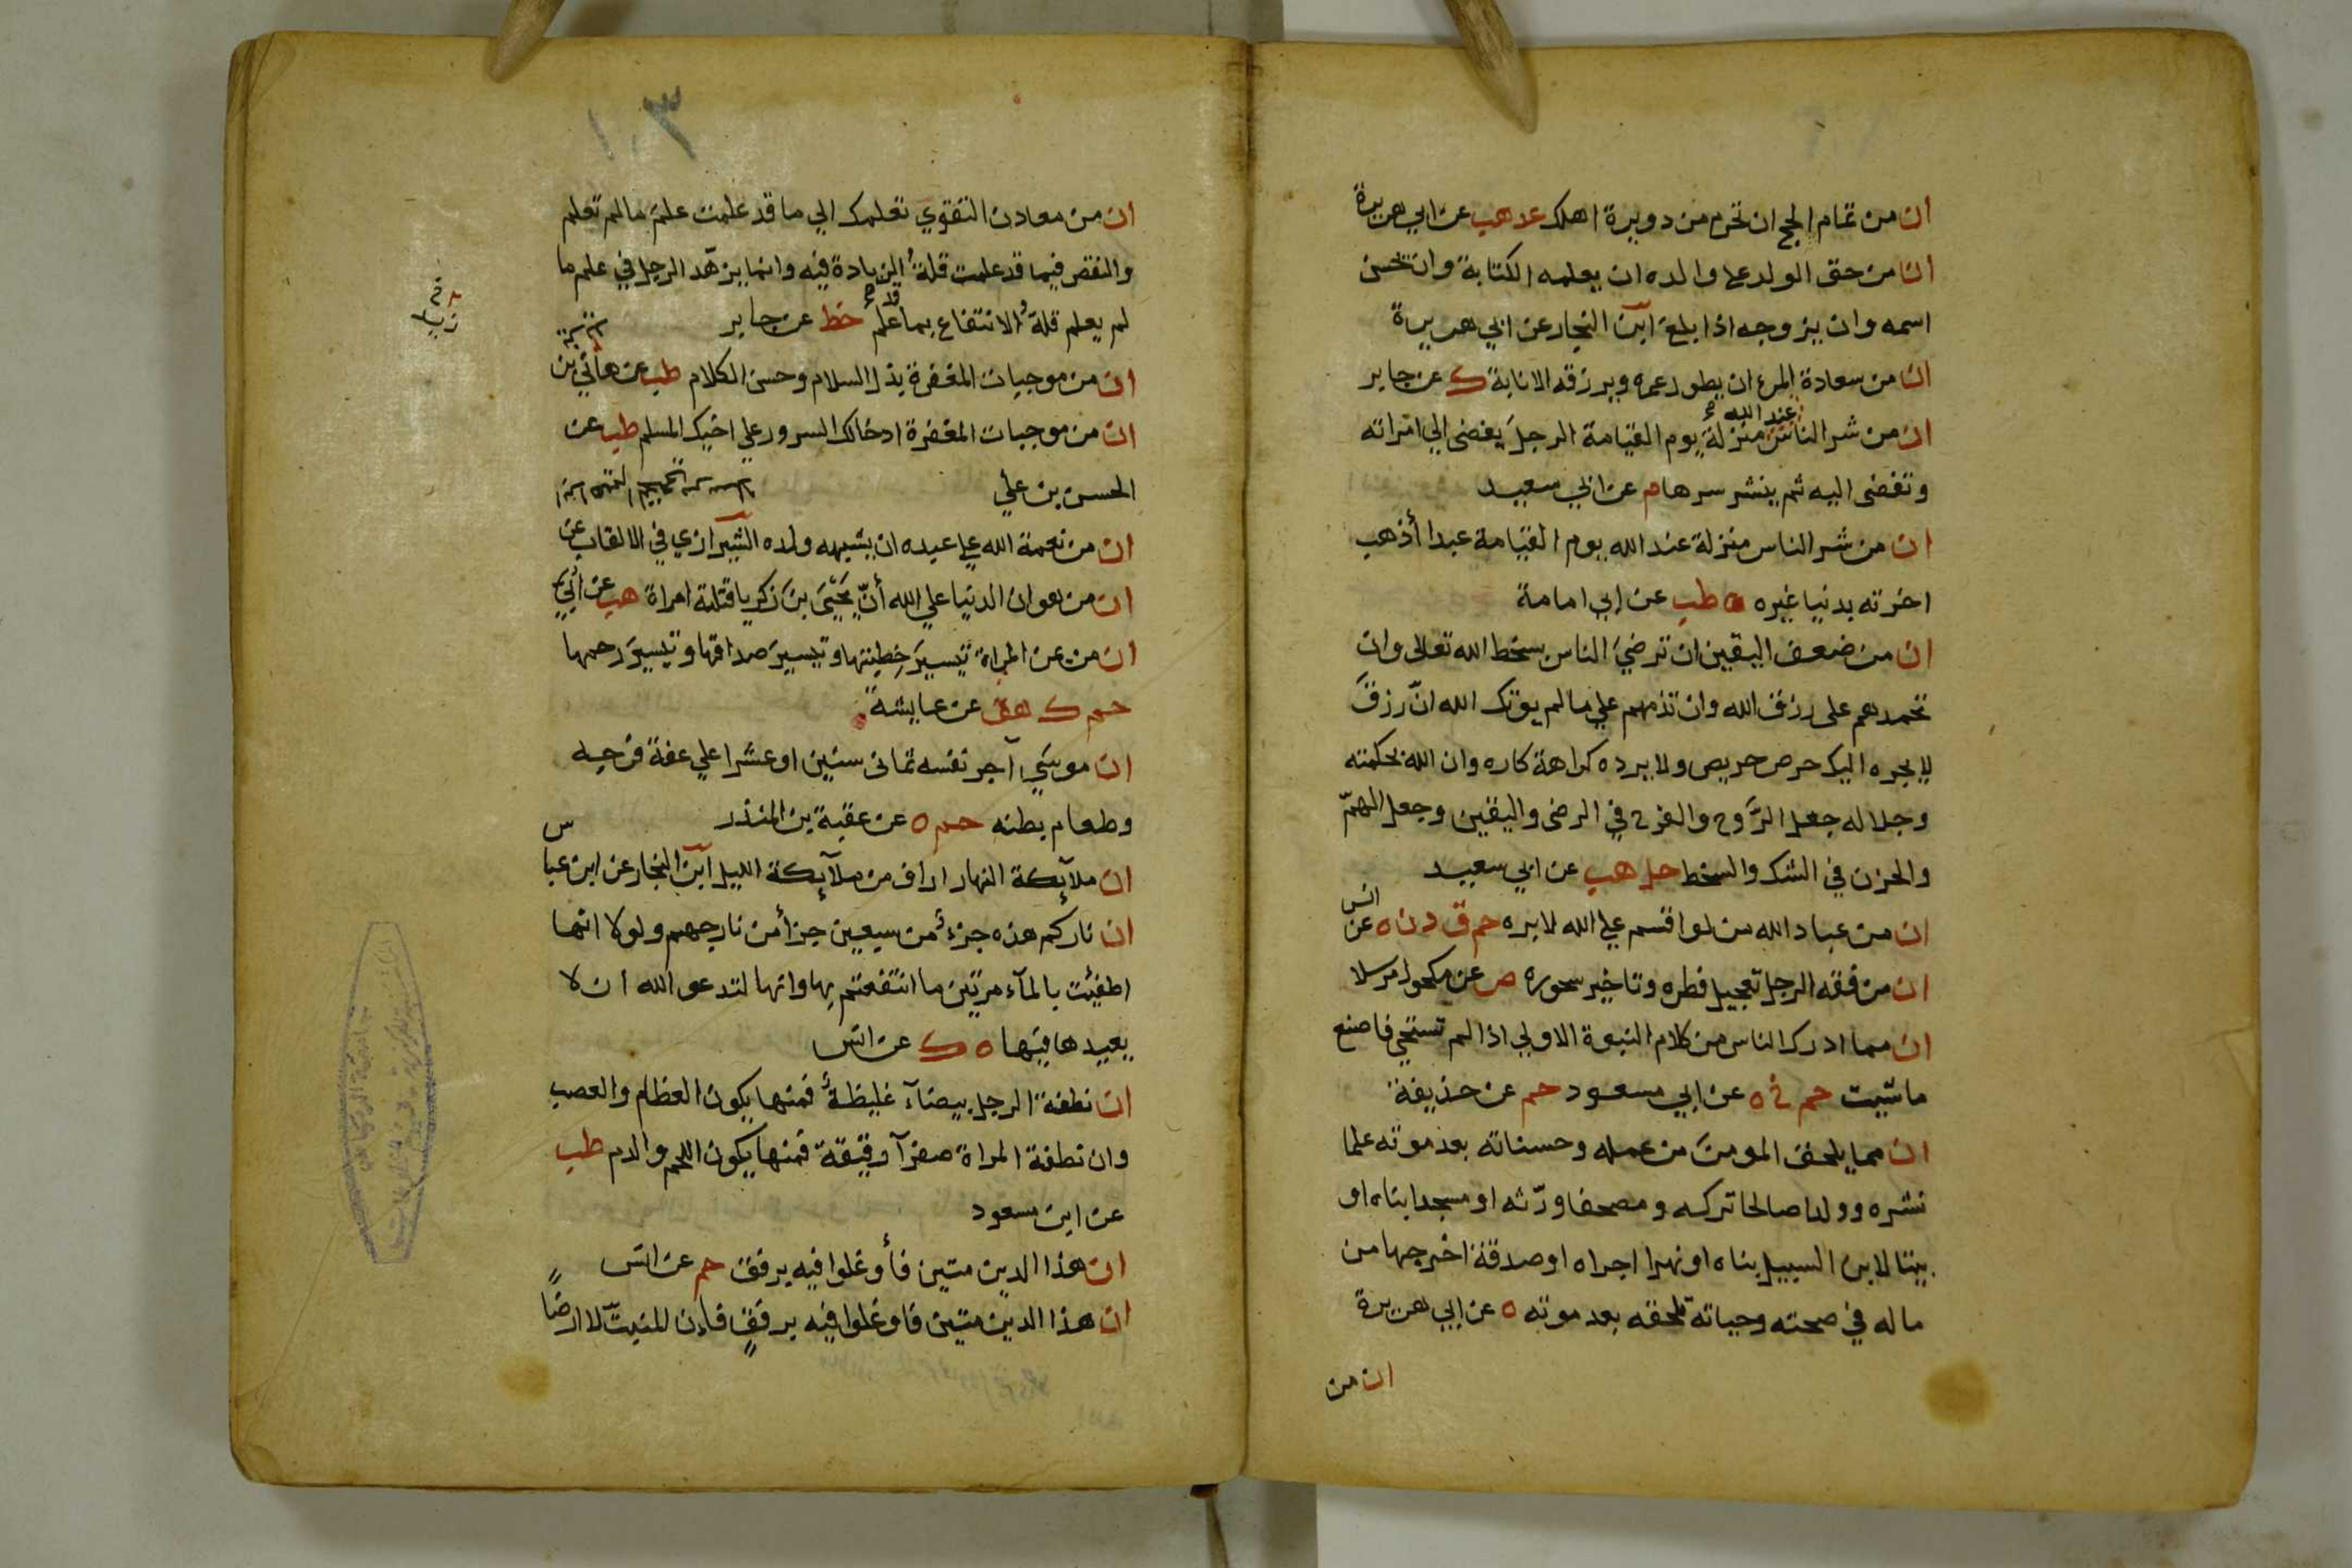 ان من تمام الحج ان تحرم من دويرة اهلك عد هب عن ابي هريرة
ان من حق الولد على والده ان يعلمه الكتابة وان يحسن
اسمه وان يزوجه اذا بلغ ابن النجار عن ابي هريرة
ان من سعادة المرء ان يطول عمره ويرزقه الانابة ك عن جابر
ان من شر الناس عند الله منزلة يوم القيامة الرجل يفضى الي امراته
وتفضى اليه ثم ينشر سرها م عن ابي سعيد
ان من شر الناس منزلة عند الله يوم القيامة عبدا أذهب
اخرته بدنيا غيره ه طب عن ابي امامة
ان من ضعف اليقين ان ترضي الناس بسخط الله تعالى وان
تحمدهم على رزق الله وان تذمهم علي ما لم يوتك الله انّ رزق
لا يجره اليك حرص حريص ولا يرده كراهة كاره وان الله بحكمته
وجلاله جعل الرَّوح والفرح في الرضى واليقين وجعل الهمّ
والحزن في الشك والسخط حل هب عن ابي سعيد
ان من عباد الله من لو اقسم علي الله لابره حم ق د ن ه عن انس
ان من فقه الرجل تعجيل فطره وتاخير سحوره ص عن مكحول مرسلا
ان مما ادرك الناس من كلام النبوة الاولي اذا لم تستحي فاصنع
ما شيت حم خ ه عن ابي مسعود حم عن حذيفة
ان مما يلحق المومن من عمله وحسناته بعد موته علما
نشره وولدا صالحا تركه ومصحفا ورّثه او مسجدا بناه او
بيتا لابن السبيل بناه او نهرا اجراه او صدقة اخرجها من
ماله في صحته وحياته تلحقه بعد موته ه عن ابي هريرة
ان من
١٠٣
ان من معادن التقوي تعلمك الي ما قد علمت علم ما لم تعلم
والنقص فيما قد علمت قلةُ الزيادة فيه وانما يزهّد الرجل في علم ما
لم يعلم قلةُ الانتفاع بما قد علم خط عن جابر
ان من موجبات المغفرة بذل السلام وحسن الكلام طب عن هانّي بن
ان من موجبات المغفرة ادخالك السرور علي اخيك المسلم طب عن
الحسن بن علي
ان من نعمة الله علي عبده ان يشبهه ولده الشيرازي في الالقاب عن
ان من هوان الدنيا علي الله أنّ يَحْيَى بن زكريا قتلته امراة هب عن ابي
ان من يمن المراة تيسيرَ خِطبتها وتيسيرَ صداقها وتيسيرَ رحمها
حم ك هق عن عايشة
ان موسَي آجر نفسه ثمانى سنين او عشرا علي عفة فرجه
وطعام بطنه حم ه عن عقبة بن المنذر
ان ملآيكة النهار اراف من ملآيكة الليل ابن النجار عن ابن عباس
ان ناركم هذه جزءٌ من سبعين جزأ من نار جهنم ولولا انها
اطفئت بالمآء مرتين ما انتفعتم بها وانها لتدعو الله ان لا
يعيدها فيها ه ك عن انس
ان نطفة الرجل بيضآء غليظةٌ فمنها يكون العظام والعصب
وان نطفة المراة صفرآ رقيقة فمنها يكون اللحم والدم طب
عن ابن مسعود
ان هذا الدين متين فأوغلوا فيه برفق حم عن انس
ان هذا الدين متين فاوغلوا فيه برفقٍ فاِن المنبتّ لا ارضًا